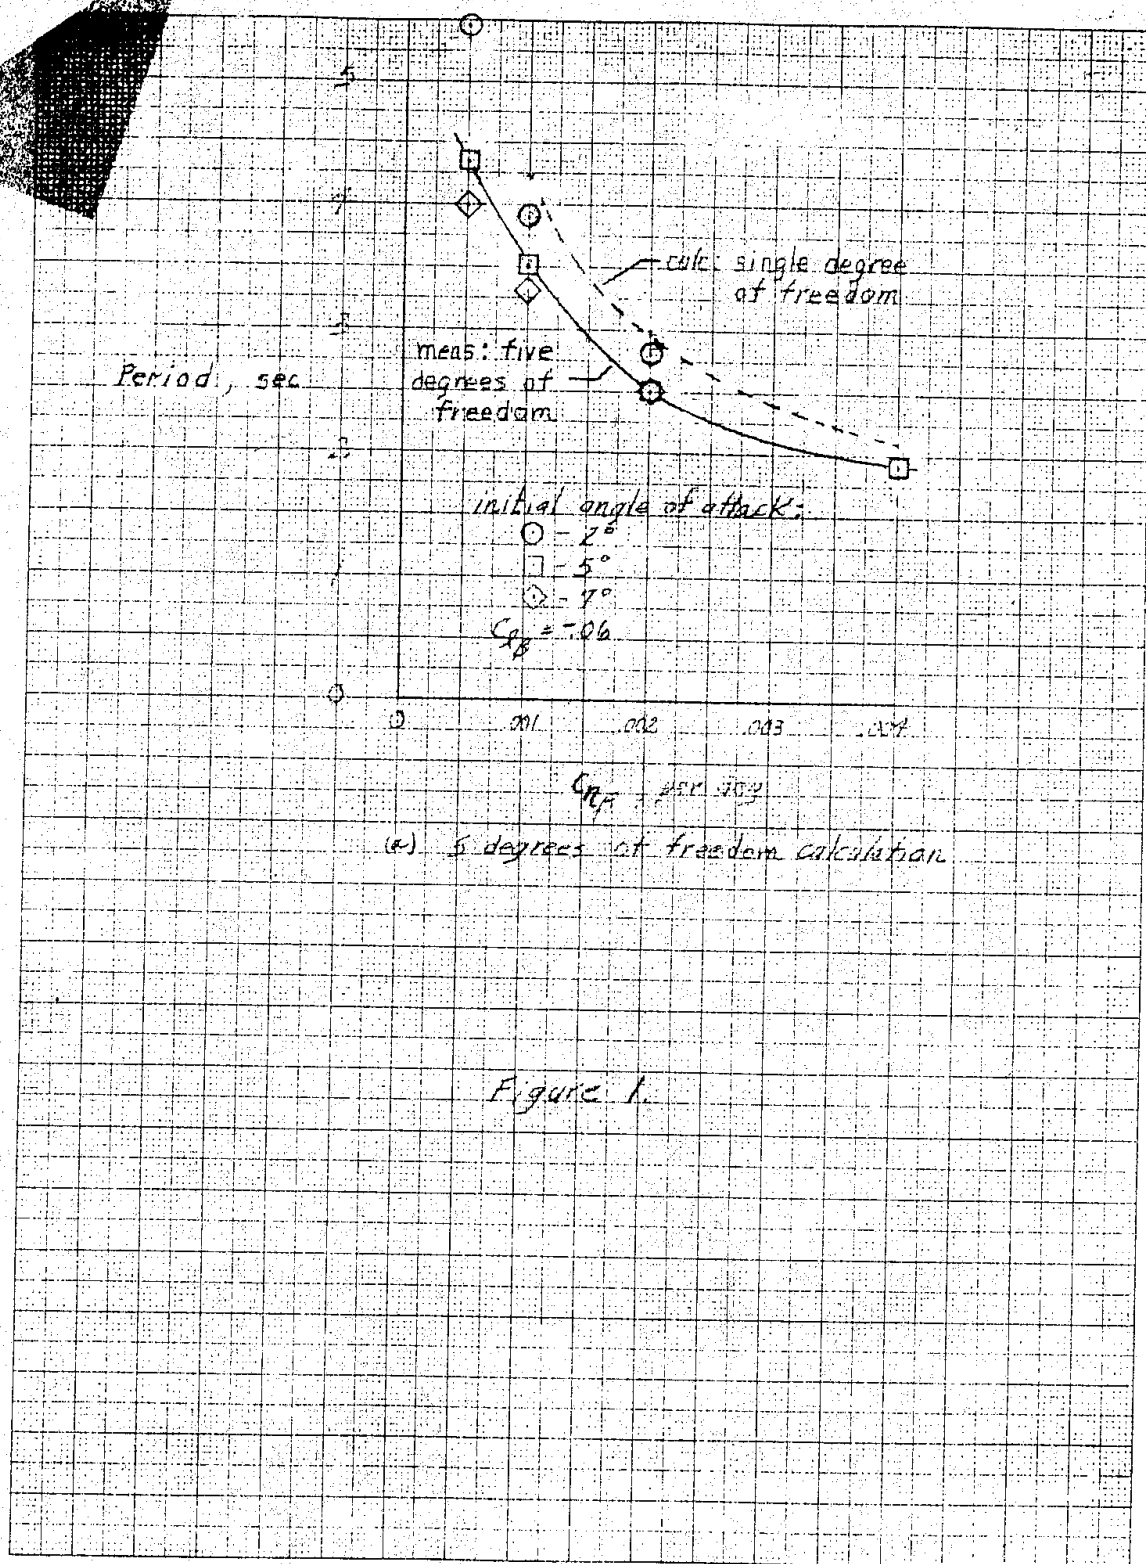 5
4
calc: single degree
of freedom
3
meas: five
degrees of
freedom
Period, sec
2
initial angle of attack:
○ - 2°
□ - 5°
◇ - 7°
1
C_lβ = -.06
0
0 .001 .002 .003 .004
per deg
(a) 5 degrees of freedom calculation
Figure 1.